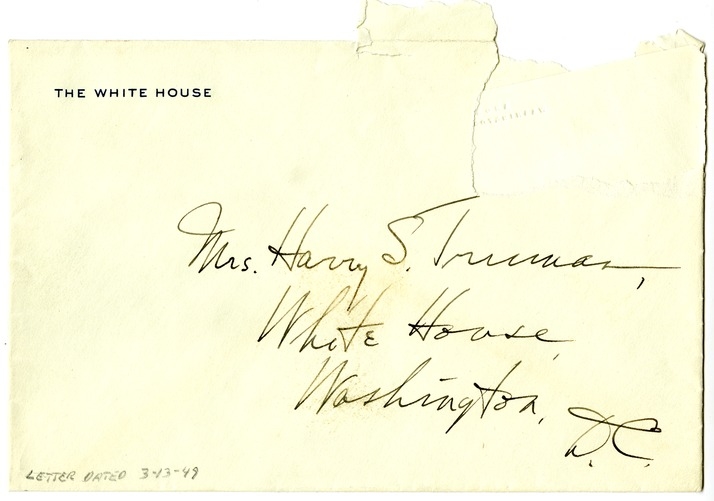 THE WHITE HOUSE
Mrs. Harry S. Truman,
White House,
Washington,
D.C.
LETTER DATED 3-13-49